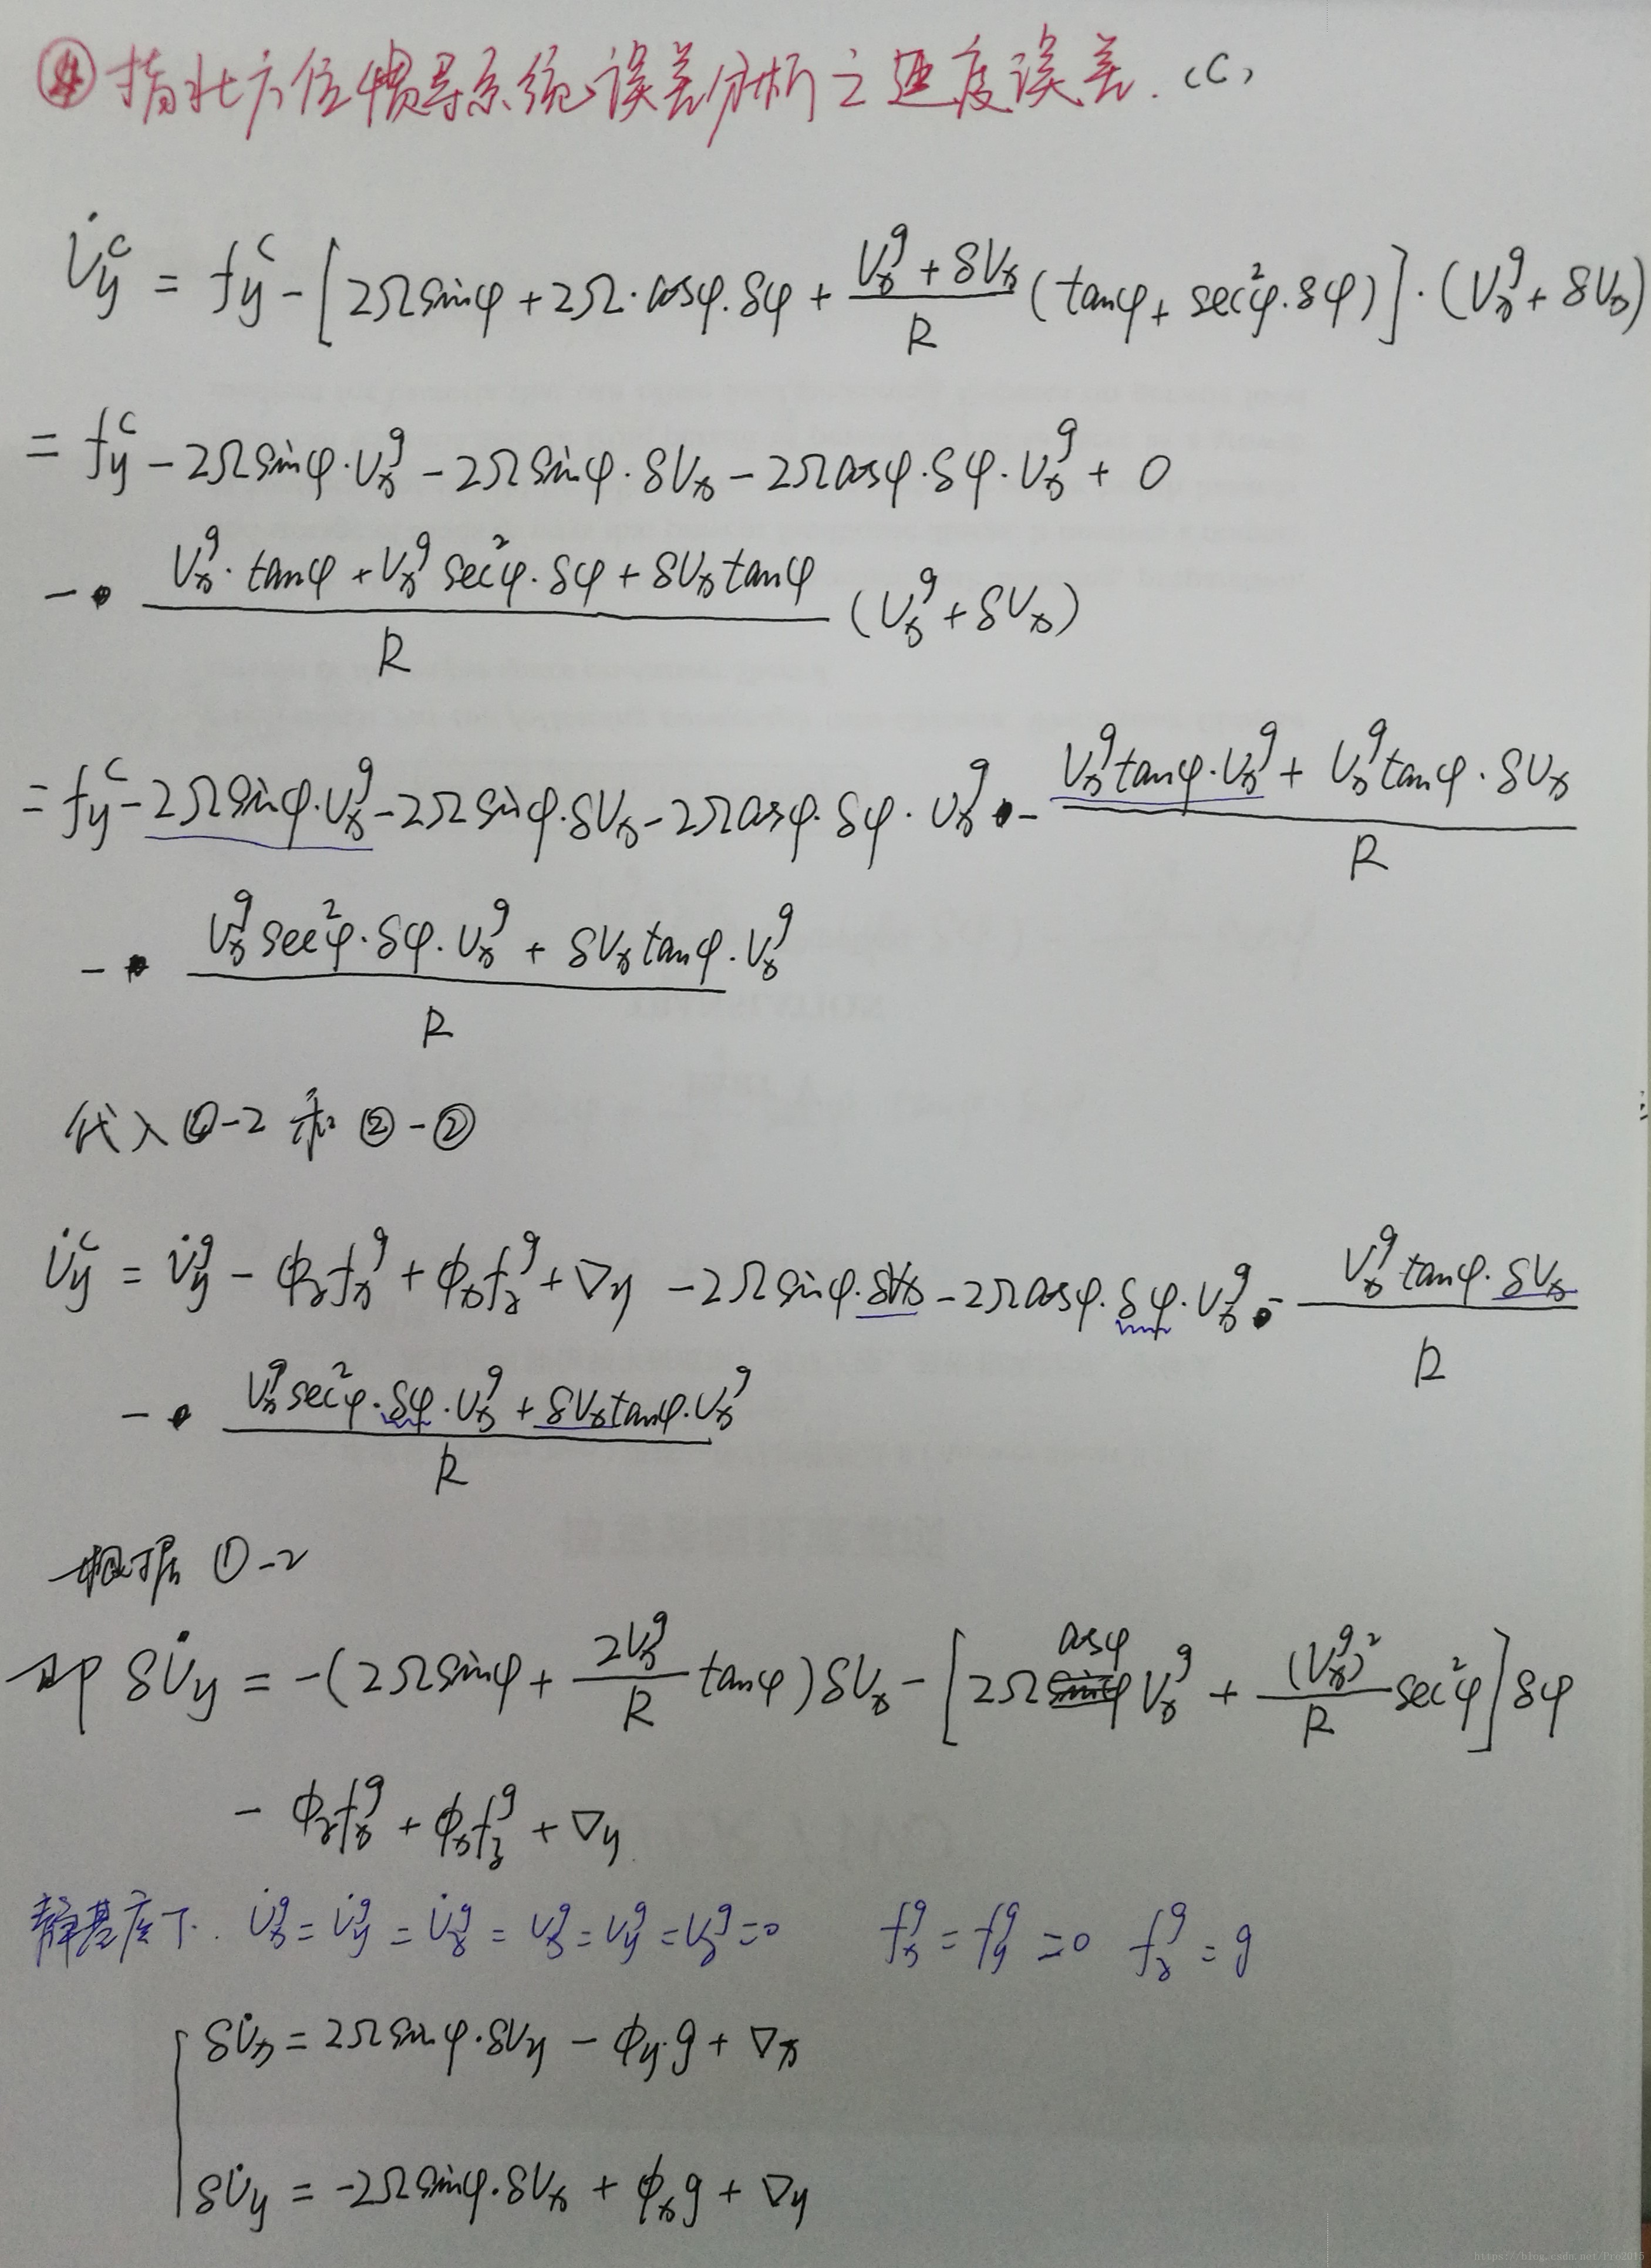 ④指北方位惯导系统误差分析之速度误差.(C)
V̇y^c = fy^c - [2Ωsinφ + 2Ω·cosφ·δφ + (Vx^g + δVx)/R (tanφ + sec²φ·δφ)]·(Vx^g + δVx)
= fy^c - 2Ωsinφ·Vx^g - 2Ωsinφ·δVx - 2Ωcosφ·δφ·Vx^g + 0
- (Vx^g·tanφ + Vx^g sec²φ·δφ + δVx tanφ)/R (Vx^g + δVx)
= fy^c - 2Ωsinφ·Vx^g - 2Ωsinφ·δVx - 2Ωcosφ·δφ·Vx^g - (Vx^g tanφ·Vx^g + Vx^g tanφ·δVx)/R
- (Vx^g sec²φ·δφ·Vx^g + δVx tanφ·Vx^g)/R
代入 -2 和 ②-②
V̇y^c = V̇y^g - ϕz fx^g + ϕx fz^g + ∇y - 2Ωsinφ·δVx - 2Ωcosφ·δφ·Vx^g - (Vx^g tanφ·δVx)/R
- (Vx^g sec²φ·δφ·Vx^g + δVx tanφ·Vx^g)/R
根据 ①-2
即 δV̇y = -(2Ωsinφ + 2Vx^g/R tanφ)δVx - [2Ω cosφ Vx^g + (Vx^g)²/R sec²φ]δφ
- ϕz fx^g + ϕx fz^g + ∇y
静基座下. V̇x^g = V̇y^g = V̇z^g = Vx^g = Vy^g = Vz^g = 0 fx^g = fy^g = 0 fz^g = g
δV̇x = 2Ωsinφ·δVy - ϕy·g + ∇x
δV̇y = -2Ωsinφ·δVx + ϕx g + ∇y